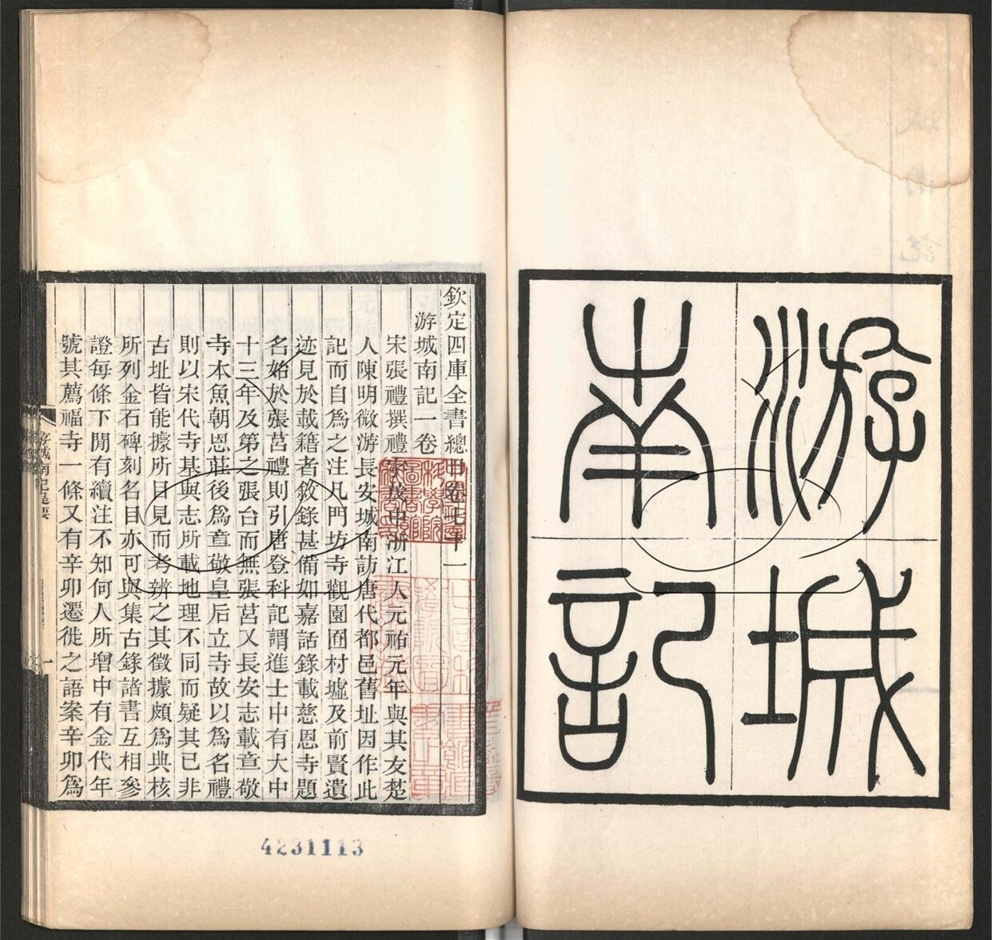 游城
南記
欽定四庫全書總目卷七十一
游城南記一卷
宋張禮撰禮字茂中浙江人元祐元年與其友楚
人陳明微游長安城南訪唐代都邑舊址因作此
記而自爲之注凡門坊寺觀園囿村墟及前賢遺
迹見於載籍者敘錄甚備如嘉話錄載慈恩寺題
名始於張莒禮則引唐登科記謂進士中有大中
十三年及第之張台而無張莒又長安志載章敬
寺本魚朝恩莊後爲章敬皇后立寺故以爲名禮
則以宋代寺基與志所載地理不同而疑其已非
古址皆能據所目見而考辨之其徵據頗爲典核
所列金石碑刻名目亦可與集古錄諸書互相參
證每條下閒有續注不知何人所增中有金代年
號其薦福寺一條又有辛卯遷徙之語案辛卯爲
游城南記提要
一
4231113